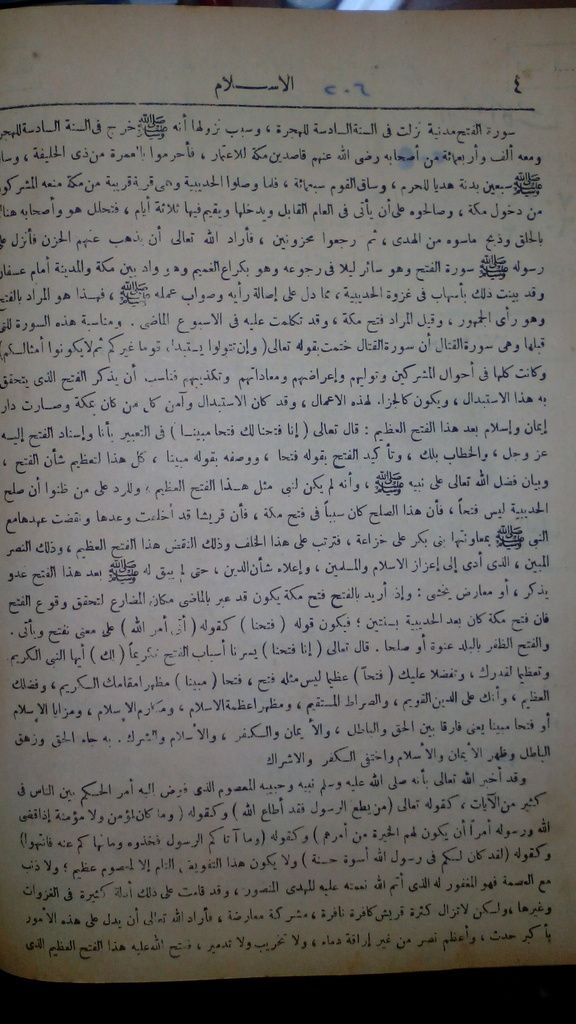 ٤ الاســـلام ٢٠٦
سورة الفتح مدنية نزلت فى السنة السادسة للهجرة ، وسبب نزولها أنه ﷺ خرج فى السنة السادسة للهجر
ومعه ألف وأربعمائة من أصحابه رضى الله عنهم قاصدين مكة للاعتمار ، فأحرموا بالعمرة من ذى الحليفة ، وسا
ﷺ سبعين بدنة هديا للحرم ، وساق القوم سبعمائة ، فلما وصلوا الحديبية وهى قرية قريبة من مكة منعه المشركو
من دخول مكة ، وصالحوه على أن يأتى فى العام القابل ويدخلها ويقيم فيها ثلاثة أيام ، فتحلل هو وأصحابه هنا
بالحلق وذبح ماسوه من الهدى ، ثم رجعوا محزونين ، فأراد الله تعالى أن يذهب عنهم الحزن فأنزل عل
رسوله ﷺ سورة الفتح وهو سائر ليلا فى رجوعه وهو بكراع الغميم وهو واد بين مكة والمدينة أمام عسفا
وقد بينت ذلك بأسهاب فى غزوة الحديبية ، مما دل على إصالة رأيه وصواب عمله ﷺ ، فهذا هو المراد بالفتح
وهو رأى الجمهور ، وقيل المراد فتح مكة ، وقد تكلمت عليه فى الاسبوع الماضى . ومناسبة هذه السورة للتى
قبلها وهى سورة القتال أن سورة القتال ختمت بقوله تعالى ( وإن تتولوا يستبدل قوما غيركم ثم لا يكونوا أمثالكم)
وكانت كلها فى أحوال المشركين وتوليهم وإعراضهم ومعاداتهم وتكذيبهم فناسب أن يذكر الفتح الذى يتحقق
به هذا الاستبدال ، ويكون كالجزاء لهذه الاعمال ، وقد كان الاستبدال وآمن كل من كان بمكة وصارت دار
إيمان وإسلام بعد هذا الفتح العظيم : قال تعالى ( إنا فتحنا لك فتحا مبينا ) فى التعبير بأنا وإسناد الفتح إليه
عز وجل ، والخطاب بلك ، وتأكيد الفتح بقوله فتحا ، ووصفه بقوله مبينا ، كل هذا لتعظيم شأن الفتح ،
وبيان فضل الله تعالى على نبيه ﷺ ، وأنه لم يكن لنبى مثل هذا الفتح العظيم ؛ وللرد على من ظنوا أن صلح
الحديبية ليس فتحاً ، فأن هذا الصلح كان سبباً فى فتح مكة ، فأن قريشا قد أخلفت وعدها ونقضت عهدها مع
النبى ﷺ بمعاونتها بنى بكر على خزاعة ، فترتب على هذا الخلف وذلك النقض هذا الفتح العظيم ، وذلك النصر
المبين ، الذى أدى إلى إعزاز الاسلام والمسلمين ، وإعلاء شأن الدين ، حتى لم يبق له ﷺ بعد هذا الفتح عدو
يذكر ، أو معارض يخشى : وإذ أريد بالفتح فتح مكة يكون قد عبر بالماضى مكان المضارع لتحقق وقوع الفتح
فان فتح مكة كان بعد الحديبية بسنتين ؛ فيكون قوله ( فتحنا ) كقوله ( أتى أمر الله ) على معنى نفتح ويأتى .
والفتح الظفر بالبلد عنوة أو صلحا . قال تعالى ( إنا فتحنا ) يسرنا أسباب الفتح تكريماً ( لك ) أيها النبى الكريم
وتعظيما لقدرك ، وتفضلا عليك ( فتحاً ) عظيما ليس مثله فتح ، فتحا ( مبينا ) مظهر امقامك الكريم ، وفضلك
العظيم ، وأنك على الدين القويم ، والصراط المستقيم ، ومظهر اعظمة الاسلام ، ومكارم الاسلام ، ومزايا الاسلام
أو فتحا مبينا يعنى فارقا بين الحق والباطل ، والأيمان والكفر ، والأسلام والشرك . به جاء الحق وزهق
الباطل وظهر الأيمان والأسلام واختفى الكفر والاشراك
وقد أخبر الله تعالى بأنه صلى الله عليه وسلم نبيه وحبيبه المعصوم الذى فوض اليه أمر الحكم بين الناس فى
كثير من الآيات ، كقوله تعالى (من يطع الرسول فقد أطاع الله ) وكقوله ( وما كان لمؤمن ولا مؤمنة إذا قضى
الله ورسوله أمراً أن يكون لهم الخيرة من أمرهم ) وكقوله (وما آتاكم الرسول فخذوه وما نهاكم عنه فانتهوا)
وكقوله (لقد كان لكم فى رسول الله أسوة حسنة ) ولا يكون هذا التفويض التام إلا لمعصوم عظيم ؛ ولا ذنب
مع العصمة فهو المغفور له الذى أتم الله نعمته عليه للمهدى المنصور ، وقد قامت على ذلك أدلة كثيرة فى الغزوات
وغيرها ، ولكن لاتزال كثرة قريش كافرة نافرة ، مشركة معارضة ، فأراد الله تعالى أن يدل على هذه الأمور
بأكبر حدث ، وأعظم نصر من غير إراقة دماء ، ولا تخريب ولا تدمير ، ففتح الله عليه هذا الفتح العظيم الذى